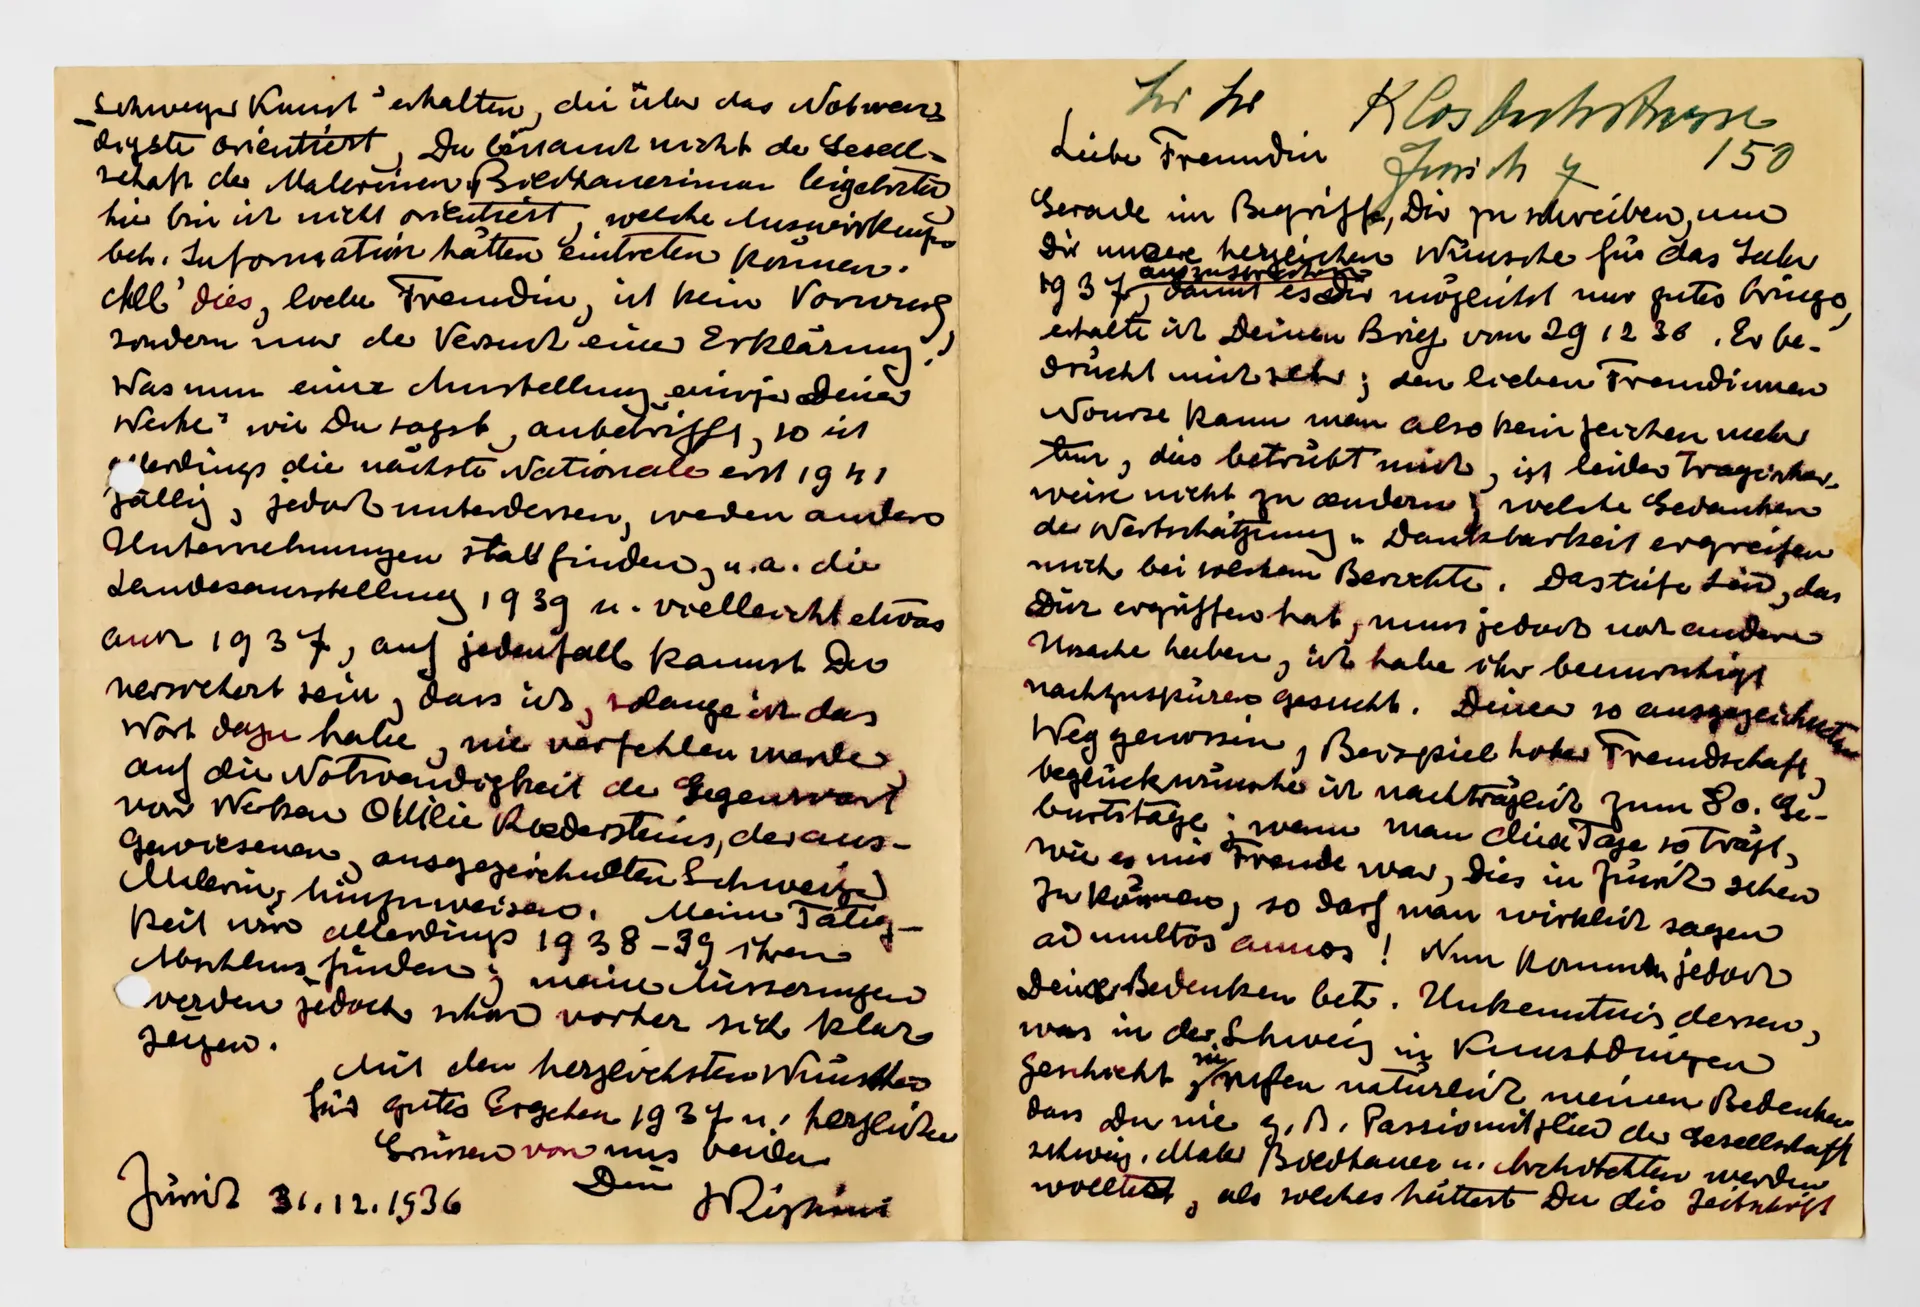 Klosbachstrasse
150
Zürich 7
Liebe Freundin
Gerade im Begriffe, Dir zu schreiben, um
Dir unsere herzlichen Wünsche für das Jahr
1937, auszusprechen
damit es Dir möglichst nur gutes bringe,
erhalte ich Deinen Brief vom 29 12 36. Er be-
drückt mich sehr; den lieben Freundinnen
Nourse kann man also kein Zeichen mehr
tun, dies betrübt mich, ist leider tragischer-
weise nicht zu aendern; welche Gedanken
der Wertschätzung u. Dankbarkeit ergreifen
mich bei solchem Berichte. Das tiefe Leid, das
Dich ergriffen hat, muss jedoch noch andere
Ursache haben, ich habe ihr beunruhigt
nachzuspüren gesucht. Deiner so ausgezeichneten
Weggenossin, Beispiel hoher Freundschaft,
beglückwünsche ich nachträglich zum 80. Ge-
burtstage; wenn man diese Tage so trägt,
wie es mir Freude war, dies in Zürich sehen
zu können, so darf man wirklich sagen
ad multos annos! Nun kommen jedoch
Deine Bedenken betr. Unkenntnis dessen,
was in der Schweiz in Kunstdingen
geschieht, sie rufen natürlich meinen Bedenken
dass Du nie z.B. Passivmitglied der Gesellschaft
schweiz. Maler Bildhauer u. Architekten werden
wolltest, als solches hättest Du die Zeitschrift
"Schweizer Kunst" erhalten, die über das Notwen-
digste orientiert, Du bist nicht der Gesell-
schaft der Malerinnen, Bildhauerinnen beigetreten
hie bin ich nicht orientiert, welche Auswirkungen
betr. Information hätten eintreten können.
All' dies, liebe Freundin, ist kein Vorwurf
sondern nur der Versuch einer Erklärung!
Was nun eine Ausstellung einiger Deiner
Werke" wie Du sagst, anbetrifft, so ist
allerdings die nächste Nationale erst 1941
fällig, jedoch unterdessen, werden andere
Unternehmungen stattfinden, u.a. die
Landesausstellung 1939 u. vielleicht etwas
auch 1937, auf jedenfall kannst Du
versichert sein, dass ich, solange ich das
Wort dazu habe, nie verfehlen werde,
auf die Notwendigkeit der Gegenwart
von Werken Ottilie Roedersteins, der aus-
gewiesenen, ausgezeichneten Schweizer
Malerin, hinzuweisen. Meine Tätig-
keit wird allerdings 1938-39 ihren
Abschluss finden; meine Äusserungen
werden jedoch schon vorher sich klar
zeigen.
Mit den herzlichsten Wünschen
für gutes Ergehen 1937 u. herzlichen
Grüssen von uns beiden
Dein
Zürich 31.12.1936 Righini